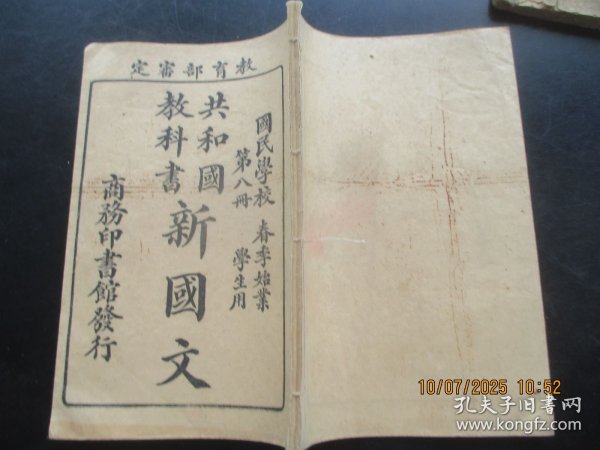 教育部審定
國民學校 春季始業
第八冊 學生用
共和國
教科書
新國文
商務印書館發行
10/07/2025 10:52
孔夫子旧书网
www.kongfz.com